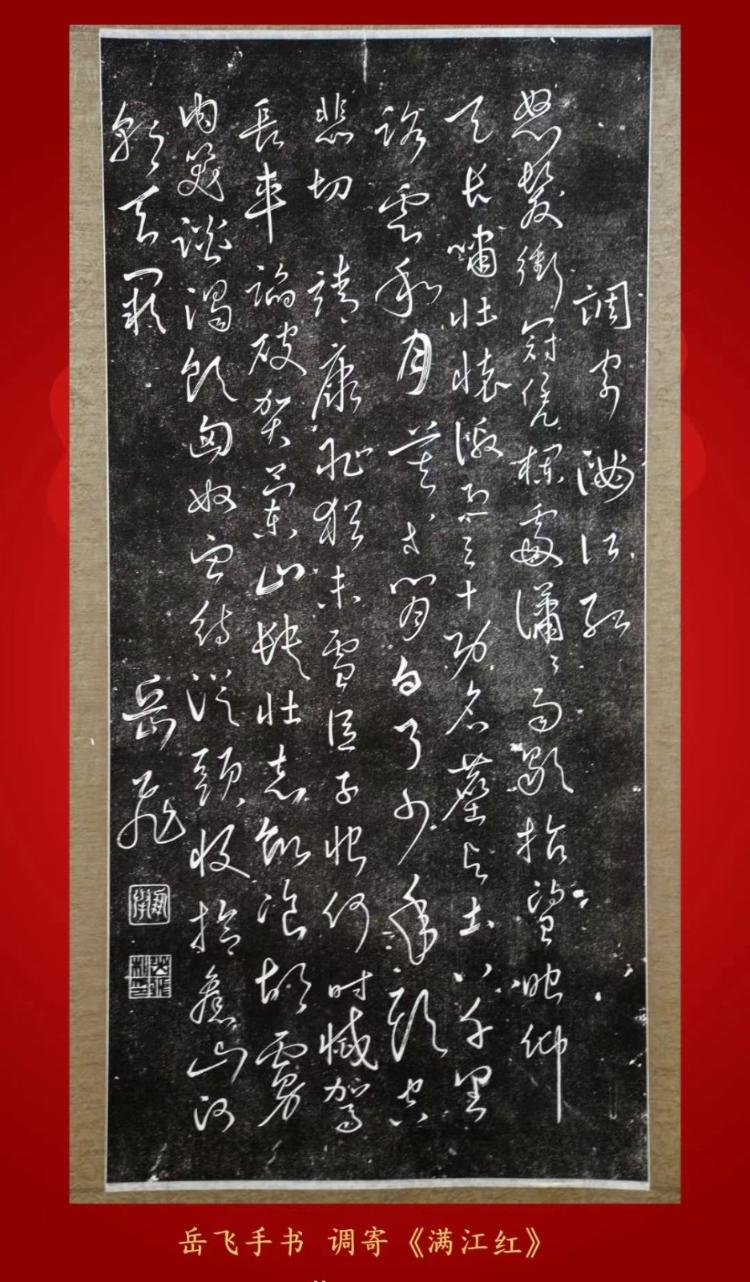 調寄滿江紅
怒髮衝冠凭欄處瀟瀟雨歇抬望眼仰
天長嘯壯懷激烈三十功名塵與土八千里
路雲和月莫等閒白了少年頭空
悲切 靖康恥猶未雪臣子恨何時滅駕
長車踏破賀蘭山缺壯志飢飡胡虜
肉笑談渴飲匈奴血待從頭收拾舊山河
朝天闕
岳飛
岳飞手书 调寄《满江红》